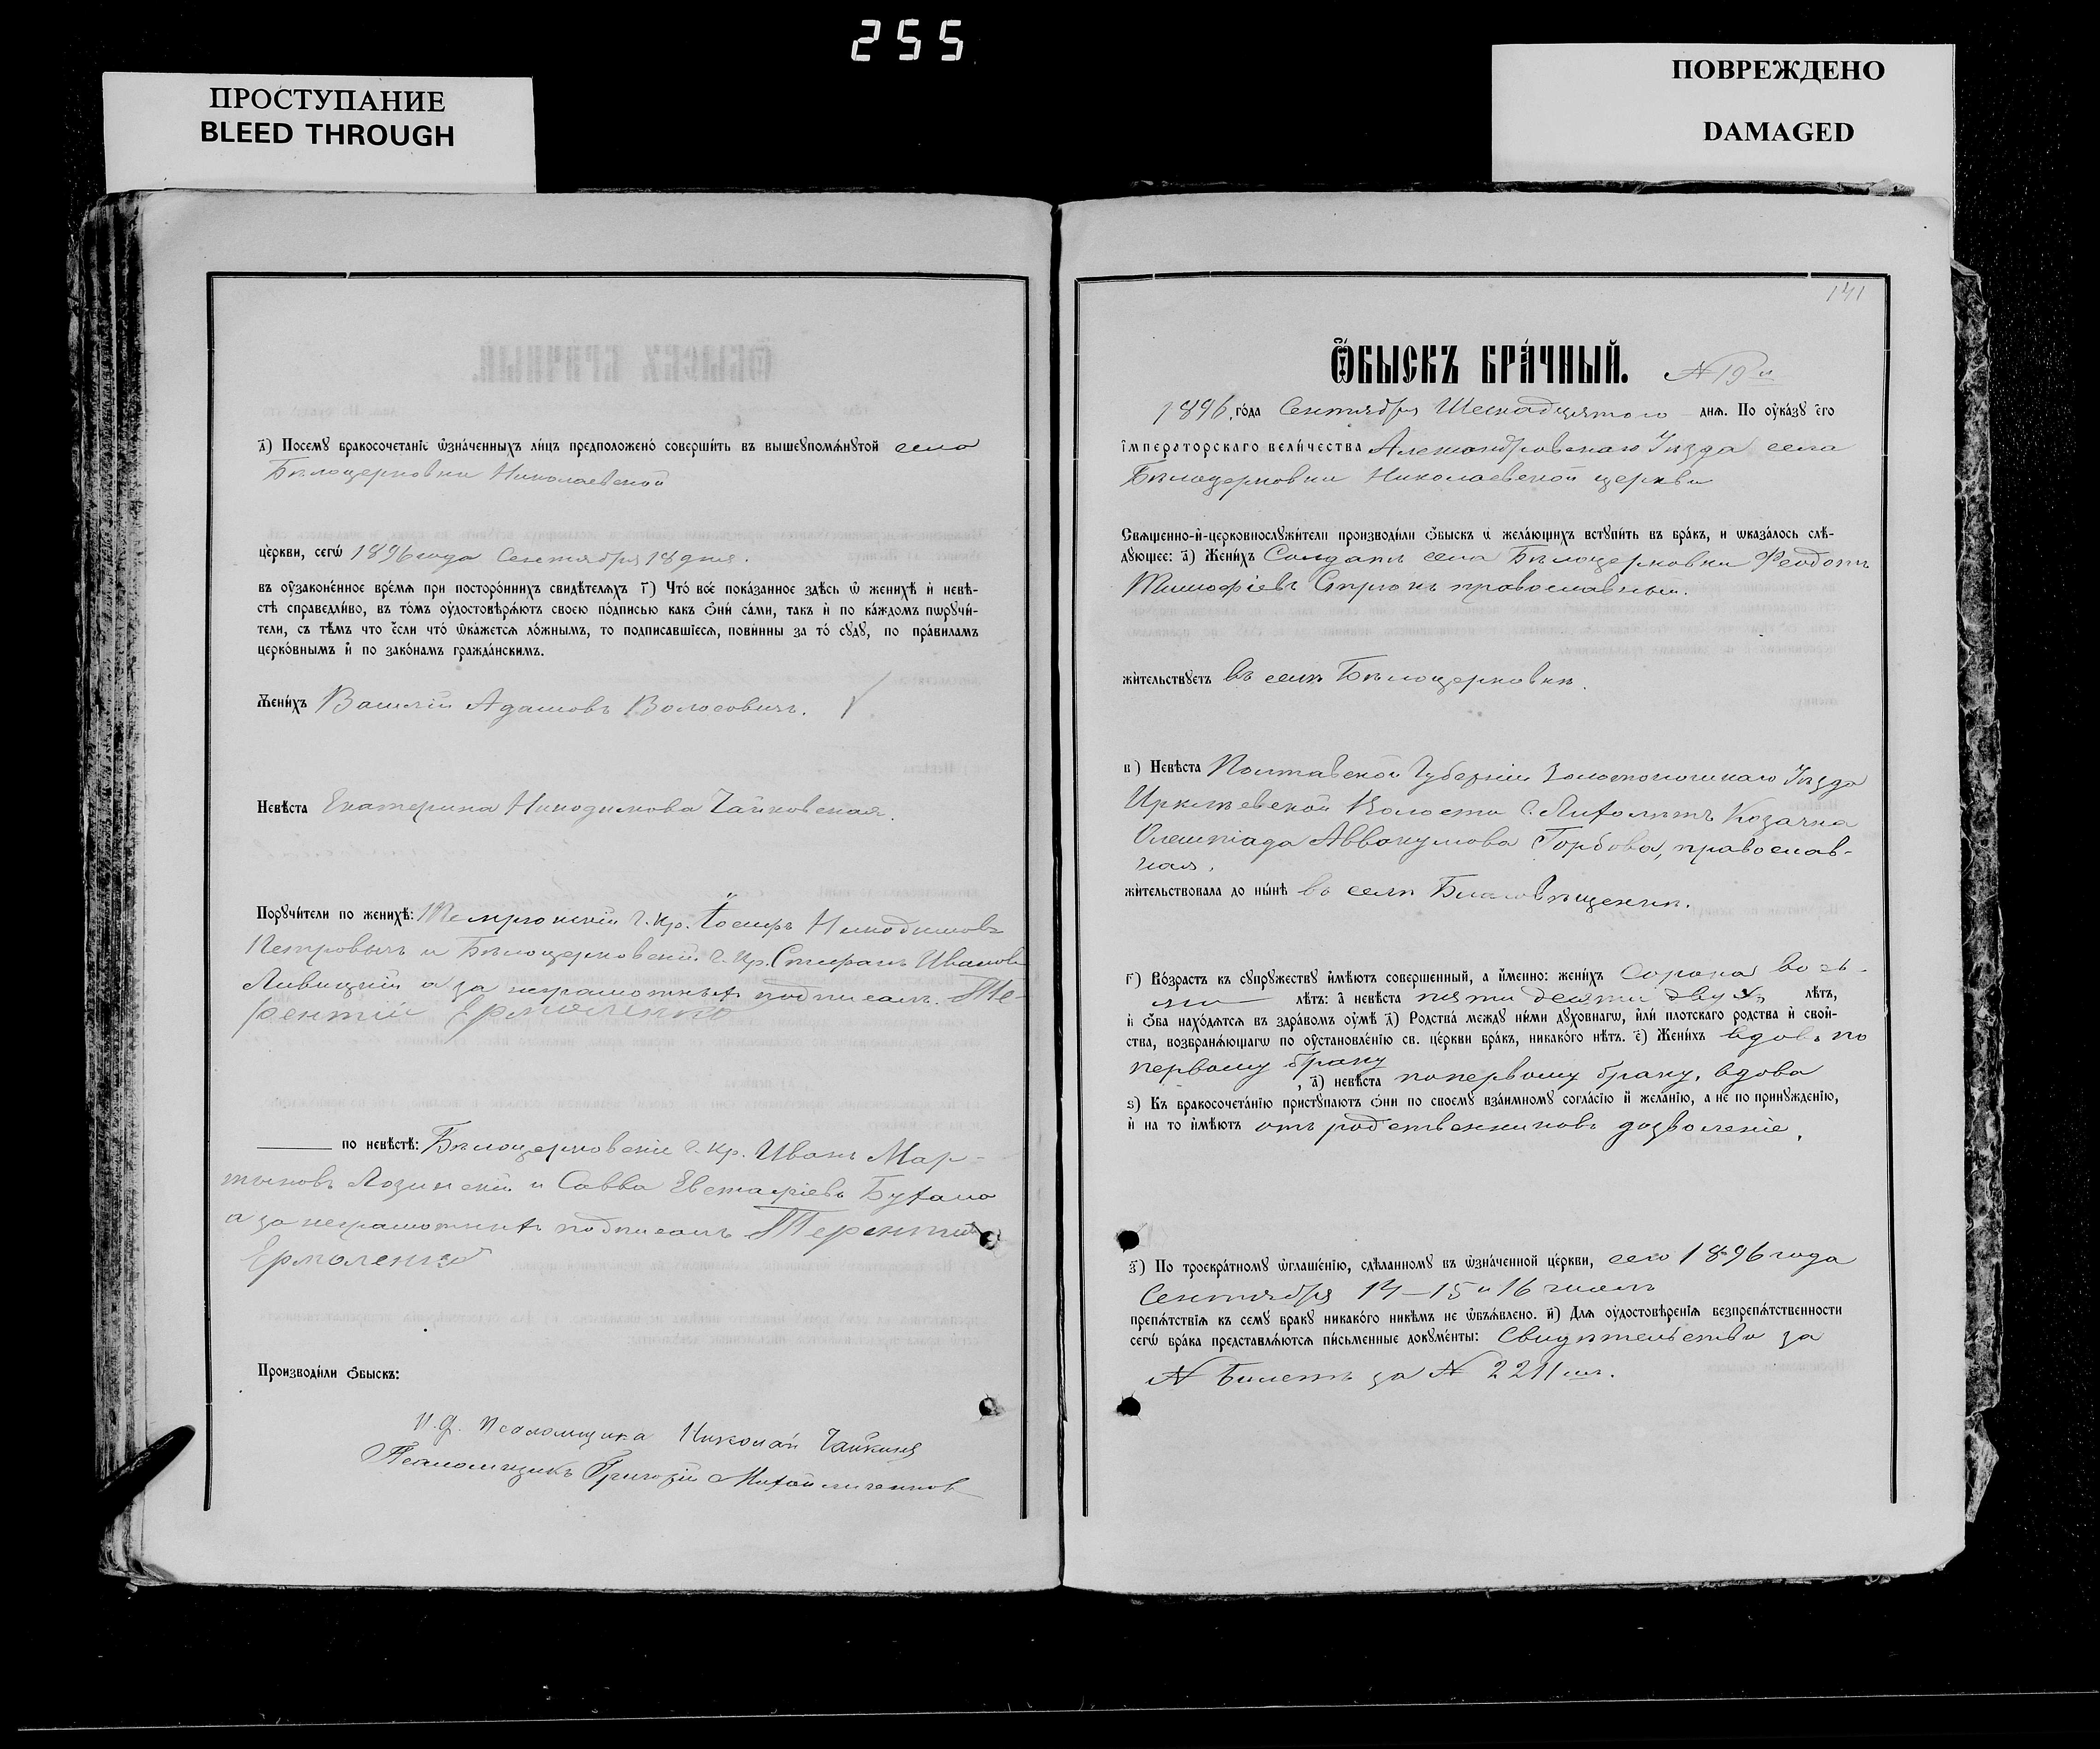 255
ПРОСТУПАНИЕ
BLEED THROUGH
ПОВРЕЖДЕНО
DAMAGED
д҃) Посемꙋ бракосочетанїе ѡзна́ченныхъ ли́цъ предположено́ соверши́ть въ вышеупомѧ́нꙋтой села
Бѣлоцерковки Николаевской
це́ркви, сегѡ̀ 1896 года Сентября 18 дня.
въ оу҆законе́нное вре́мѧ при посторо́ннихъ свидѣ́телѧхъ г҃) Что̀ все́ пока́занное здѣ́сь ѡ҆ женихѣ̀ и҆ невѣ́-
стѣ справедли́во, въ то́мъ оу҆достовѣрѧ́ютъ своею по́дписью какъ ѻ҆нѝ са́ми, такъ и҆ по ка́ждомъ порꙋчи́-
тели, съ тѣ́мъ что е҆́сли что̀ ѡ҆ка́жетсѧ ло́жнымъ, то подписавшїесѧ, пови́нны за то̀ сꙋдꙋ̀, по пра́виламъ
церко́внымъ и҆ по зако́намъ гражда́нскимъ.
Жени́хъ Василій Адамовъ Волосовичъ.
Невѣ́ста Екатерина Никодимова Чайковская.
Порꙋчи́тели по женихѣ̀: Темрюкскій г. кр. Іосифъ Никодимовъ
Петровичъ и Бѣлоцерковскій г. кр. Стефанъ Ивановъ
Ливицкій а за неграмотныхъ подписалъ Те-
рентій Ермоленко
по невѣ́стѣ: Бѣлоцерковскіе г. кр. Иванъ Мар-
тыновъ Лозинскій и Савва Евстафіевъ
а за неграмотныхъ подписалъ Терентій
Ермоленко
Производи́ли ѻ҆́быскъ:
И. д. Псаломщика Николай
Псаломщикъ Григорій
141
Ѻ҆́БЫСКЪ БРА́ЧНЫЙ. № 19й
1896 го́да Сентября Шестнадцятого днѧ. По оу҆ка́зꙋ є҆гѡ̀
і҆мператорскаго вели́чества Александровскаго Уѣзда села
Бѣлоцерковки Николаевской церкви
Свѧще́нно-и҆-церковнослꙋжи́тели производи́ли ѻ҆́быскъ ѡ҆ жела́ющихъ встꙋпи́ть въ бра́къ, и ѡказа́лось слѣ́-
дꙋющее: а҃) Жени́хъ Солдатъ села Бѣлоцерковки Феодотъ
Тимофіевъ православный.
жи́тельствꙋетъ въ селѣ Бѣлоцерковкѣ.
в҃) Невѣ́ста Полтавской Губерніи Золотоношскаго Уѣзда
Иркліевской Волости Козачка
Олимпіада Аввакумова Горбова, православ-
ная.
жи́тельствовала до ны́нѣ въ селѣ Благовѣщенкѣ.
г҃) Во́зрастъ къ сꙋпрꙋжествꙋ и҆мѣ́ютъ соверше́нный, а и҆́менно: жени́хъ Сорока вось-
ми лѣ́тъ: а҆ невѣ́ста пяти десяти двухъ лѣ́тъ,
и҆ ѻ҆́ба нахо́дѧтсѧ въ здра́вомъ оу҆мѣ̀ д҃) Родства̀ междꙋ ни́ми дꙋхо́внагѡ, и҆лѝ пло́тскаго родства и҆ свой-
ства, возбранѧ́ющагѡ по оу҆становле́нїю св. це́ркви бра́къ, никако́го нѣ́тъ. є҃) Жени́хъ вдовъ по
первому браку, д҃) невѣ́ста по первому браку, вдова
ѕ҃) Къ бракосочета́нїю пристꙋпа́ютъ ѻ҆нѝ по своемꙋ̀ взаи́мномꙋ согла́сїю и҆ жела́нїю, а нѐ по принꙋжде́нїю,
и҆ на то и҆мѣ́ютъ отъ родственниковъ дозволеніе.
з҃) По троекра́тномꙋ ѡ҆глаше́нїю, сдѣ́ланномꙋ въ ѡ҆зна́ченной це́ркви, сего 1896 года
Сентября 14–15 и 16 числъ
препѧ́тствїѧ къ семꙋ бракꙋ никако́го никѣ́мъ не ѡ҆б̾ѧ́влено. и҃) Длѧ̀ оу҆достовѣре́нїѧ безпрепѧ́тственности
сегѡ̀ бра́ка представлѧ́ютсѧ пи́сьменные докꙋме́нты: Свидѣтельство за
№ Билетъ за № 2211